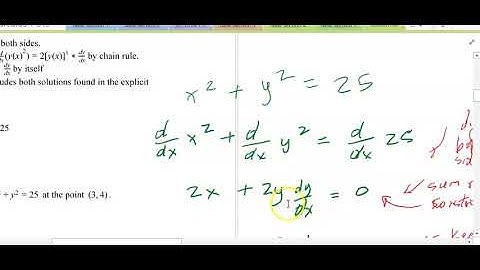 both sides.
(y(x)²) = 2[y(x)]¹ * dy/dx by chain rule.
dy/dx by itself
udes both solutions found in the explicit
25
+ y² = 25 at the point (3, 4).
x² + y² = 25
d/dx x² + d/dx y² = d/dx 25
2x + 2y dy/dx = 0
sum